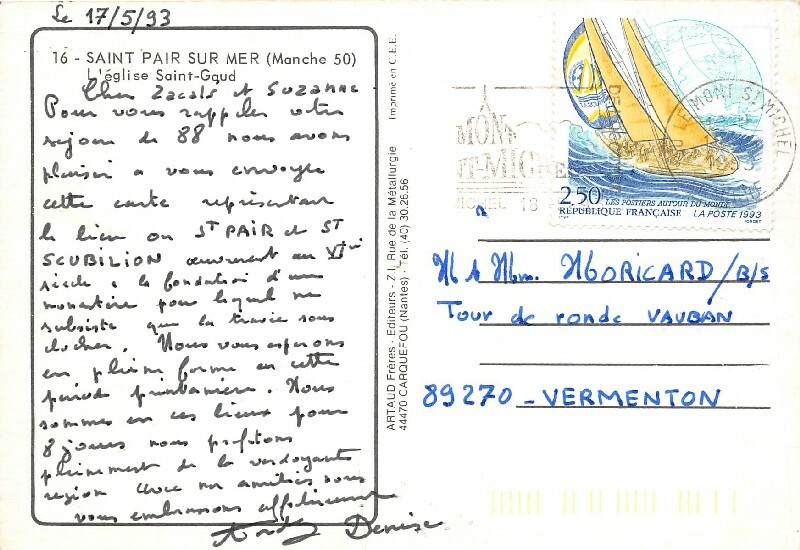 Le 17/5/93
16 - SAINT PAIR SUR MER (Manche 50)
L'église Saint-Gaud
Cher et SUZANNE
Pour vous rappeler votre
séjour de 88 nous avons
plaisir a vous envoyer
cette carte représentant
le lieu ou ST PAIR et ST
SCUBILION œuvrèrent au VIe
siècle a la fondation d'un
monastère pour lequel ne
subsiste que la travée sous
clocher. Nous vous espérons
en pleine forme en cette
période printanière. Nous
sommes en ces lieux pour
8 jours nous profitons
pleinement de la verdoyante
région avec nos amitiés nous
vous embrassons affectueusement
Denise
Imprimé en C.E.E.
ARTAUD Frères - Editeurs - Z.I. Rue de la Métallurgie
44470 CARQUEFOU (Nantes) - Tél. (40) 30.26.56
2,50 LES POSTIERS AUTOUR DU MONDE
RÉPUBLIQUE FRANÇAISE LA POSTE 1993
LE MONT ST MICHEL
M & Mm. MORICARD/B/S
Tour de ronde VAUBAN
89270 - VERMENTON